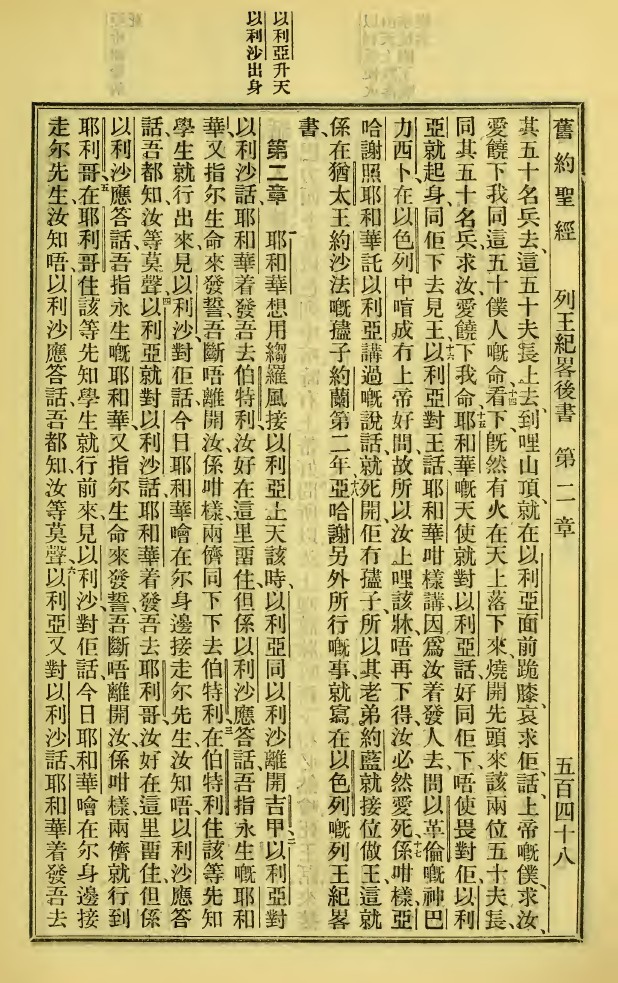 以利亞升天
以利沙出身
舊約聖經 列王紀畧後書 第二章 五百四十八
其五十名兵去、這五十夫長上去、到哩山頂、就在以利亞面前跪膝哀求佢話、上帝嘅僕、求汝、
愛饒下我同這五十僕人嘅命、十四看下、旣然有火在天上落下來、燒開先頭來該兩位五十夫長、
同其五十名兵、求汝愛饒下我命、十五耶和華嘅天使就對以利亞話、好同佢下、唔使畏對佢、以利
亞就起身、同佢下去見王、十六以利亞對王話、耶和華咁樣講、因爲汝着發人去問以革倫嘅神巴
力西卜、在以色列中喑成冇上帝好問、故所以汝上哩該牀、唔再下得、汝必然愛死係咁樣、十七亞
哈謝照耶和華託以利亞講過嘅說話、就死開、佢冇孻子、所以其老弟約藍就接位做王、這就
係在猶太王約沙法嘅孻子約蘭第二年、十八亞哈謝另外所行嘅事、就寫在以色列嘅列王紀畧
書、
第二章 一耶和華想用縐羅風接以利亞上天該時、以利亞同以利沙離開吉甲、二以利亞對
以利沙話、耶和華着發吾去伯特利、汝好在這里畱住、但係以利沙應答話、吾指永生嘅耶和
華、又指尔生命來發誓、吾斷唔離開汝、係咁樣兩儕同下下去伯特利、三在伯特利住該等先知
學生就行出來見以利沙、對佢話、今日耶和華噲在尔身邊接走尔先生、汝知唔、以利沙應答
話、吾都知、汝等莫聲、四以利亞就對以利沙話、耶和華着發吾去耶利哥、汝好在這里畱住、但係
以利沙應答話、吾指永生嘅耶和華、又指尔生命來發誓、吾斷唔離開汝、係咁樣兩儕就行到
耶利哥、五在耶利哥住該等先知學生、就行前來見以利沙、對佢話、今日耶和華噲在尔身邊接
走尔先生、汝知唔、以利沙應答話、吾都知、汝等莫聲、六以利亞又對以利沙話、耶和華着發吾去